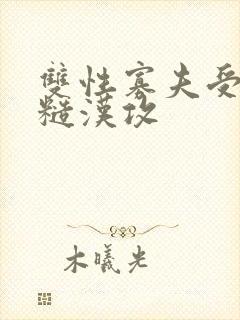 雙性寡夫受
糙漢攻
木曦光